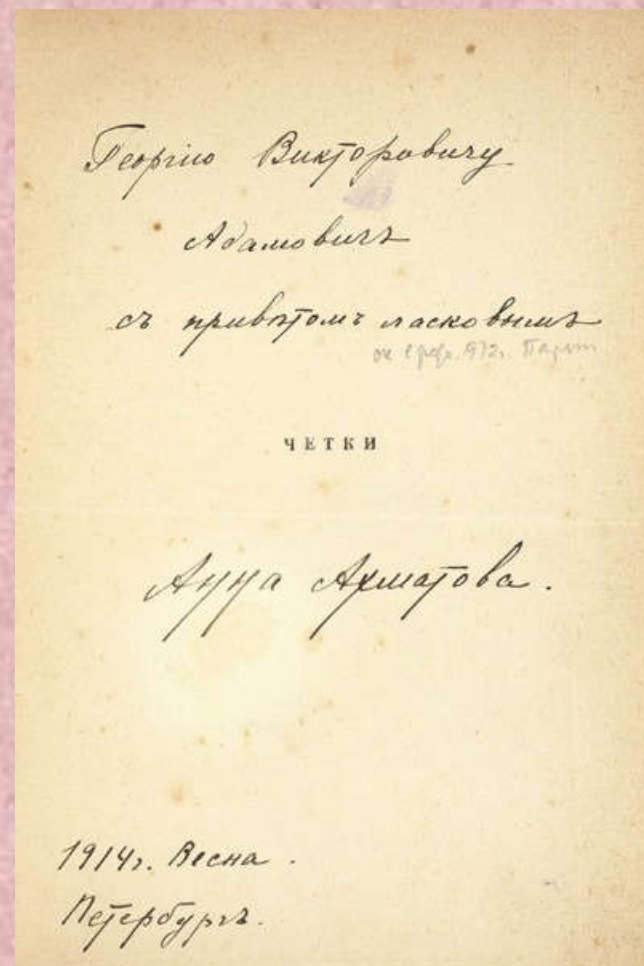 Георгію Викторовичу
Адамовичъ
съ привѣтомъ ласковымъ
ЧЕТКИ
Анна Ахматова.
1914г. Весна.
Петербургъ.